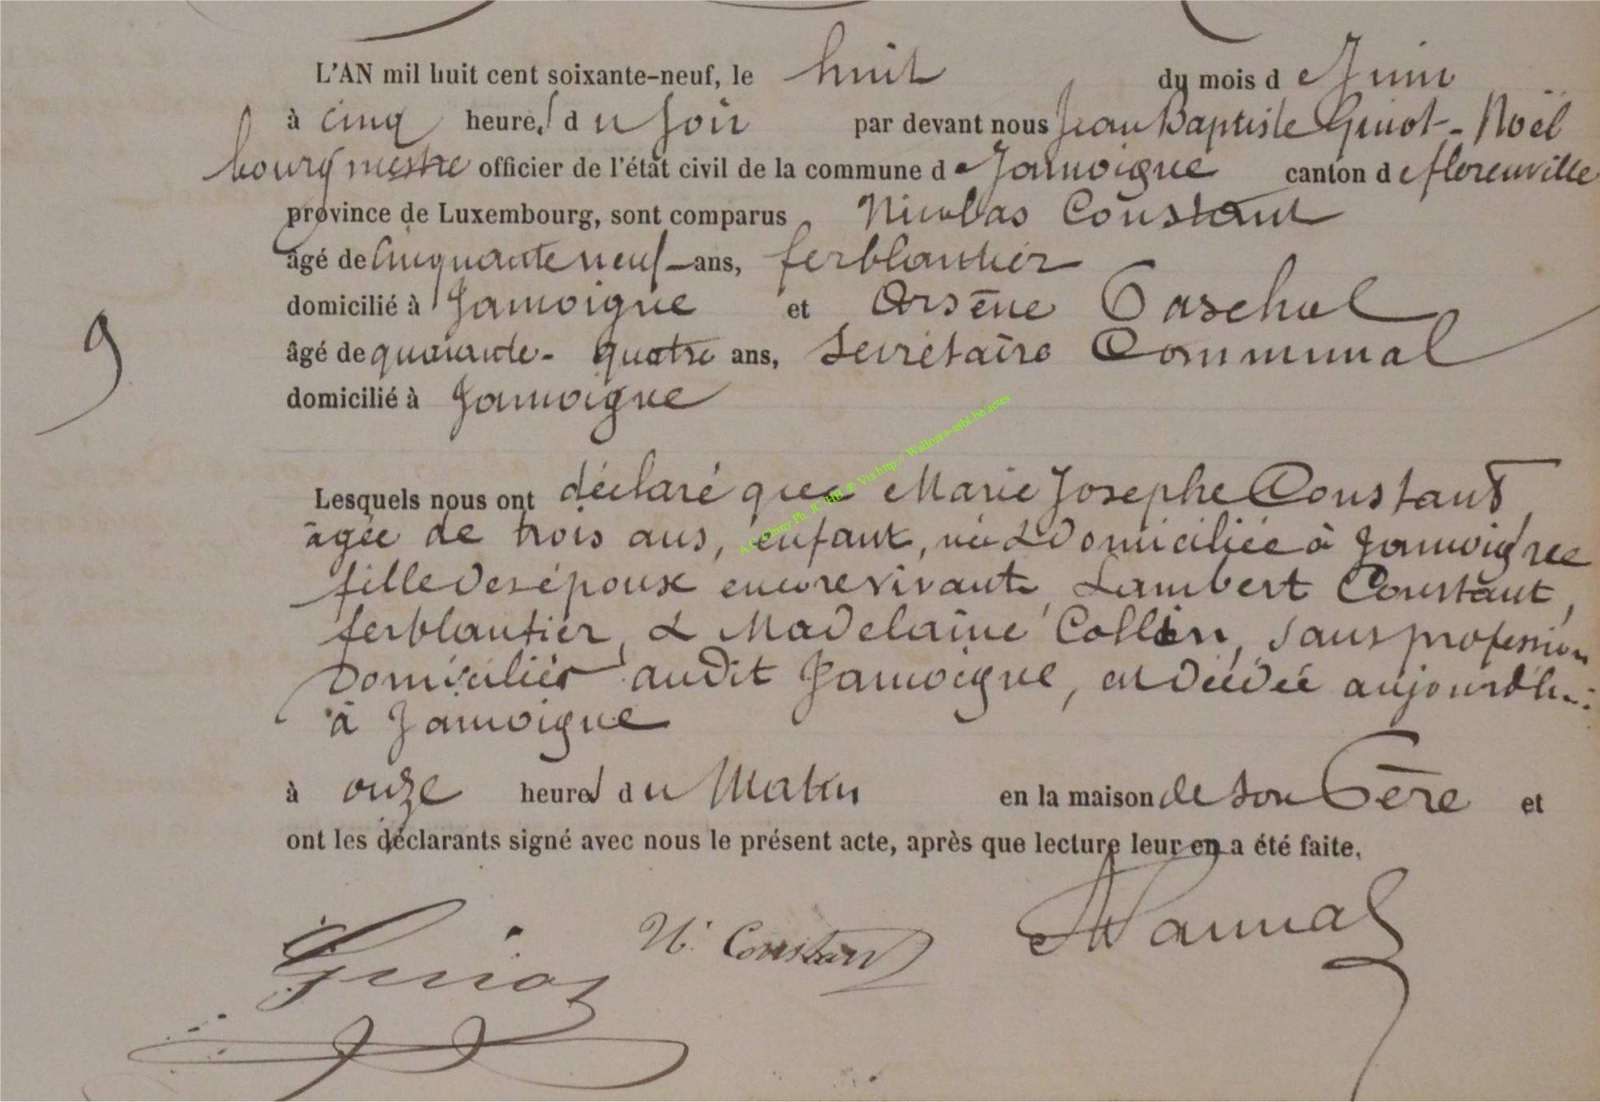 L'AN mil huit cent soixante-neuf, le huit du mois de Juin
à cinq heures du soir par devant nous Jean Baptiste Guiot-Noël
bourgmestre officier de l'état civil de la commune de Jamoigne canton de florenville
province de Luxembourg, sont comparus Nicolas Constant
âgé de cinquante neuf ans, ferblantier
domicilié à Jamoigne et Arsène Paschal
âgé de quarante-quatre ans, Secrétaire Communal
9
domicilié à Jamoigne
Lesquels nous ont déclaré que Marie Josephe Constant
âgée de trois ans, enfant, née & Domiciliée à Jamoigne
fille des époux encore vivant, Lambert Constant,
ferblantier, & Madelaine Collin, sans profession
Domiciliés audit Jamoigne, est décédée aujourd'hui
à Jamoigne
à onze heures du Matin en la maison de son Père et
ont les déclarants signé avec nous le présent acte, après que lecture leur en a été faite.
Guiot N. Constant